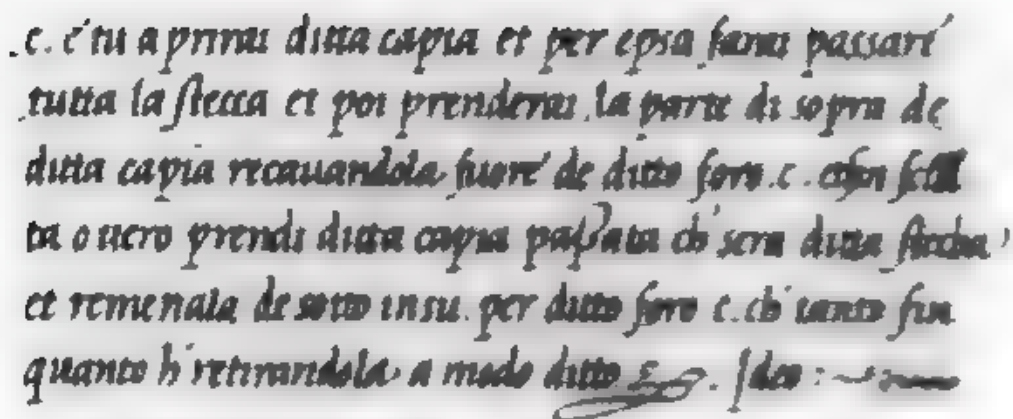 .c. e tu aprirai ditta capia et per epsa farai passare
tutta la stecca et poi prenderai la parte di sopra de
ditta capia recauandola fuore de ditto foro .c. et sera
ta o uero prendi ditta capia passata ch' sera ditta steccha
et remenala de sotto in su. per ditto foro c. ch' tanto fia
quanto h retirandola a modo ditto &. Ideo :